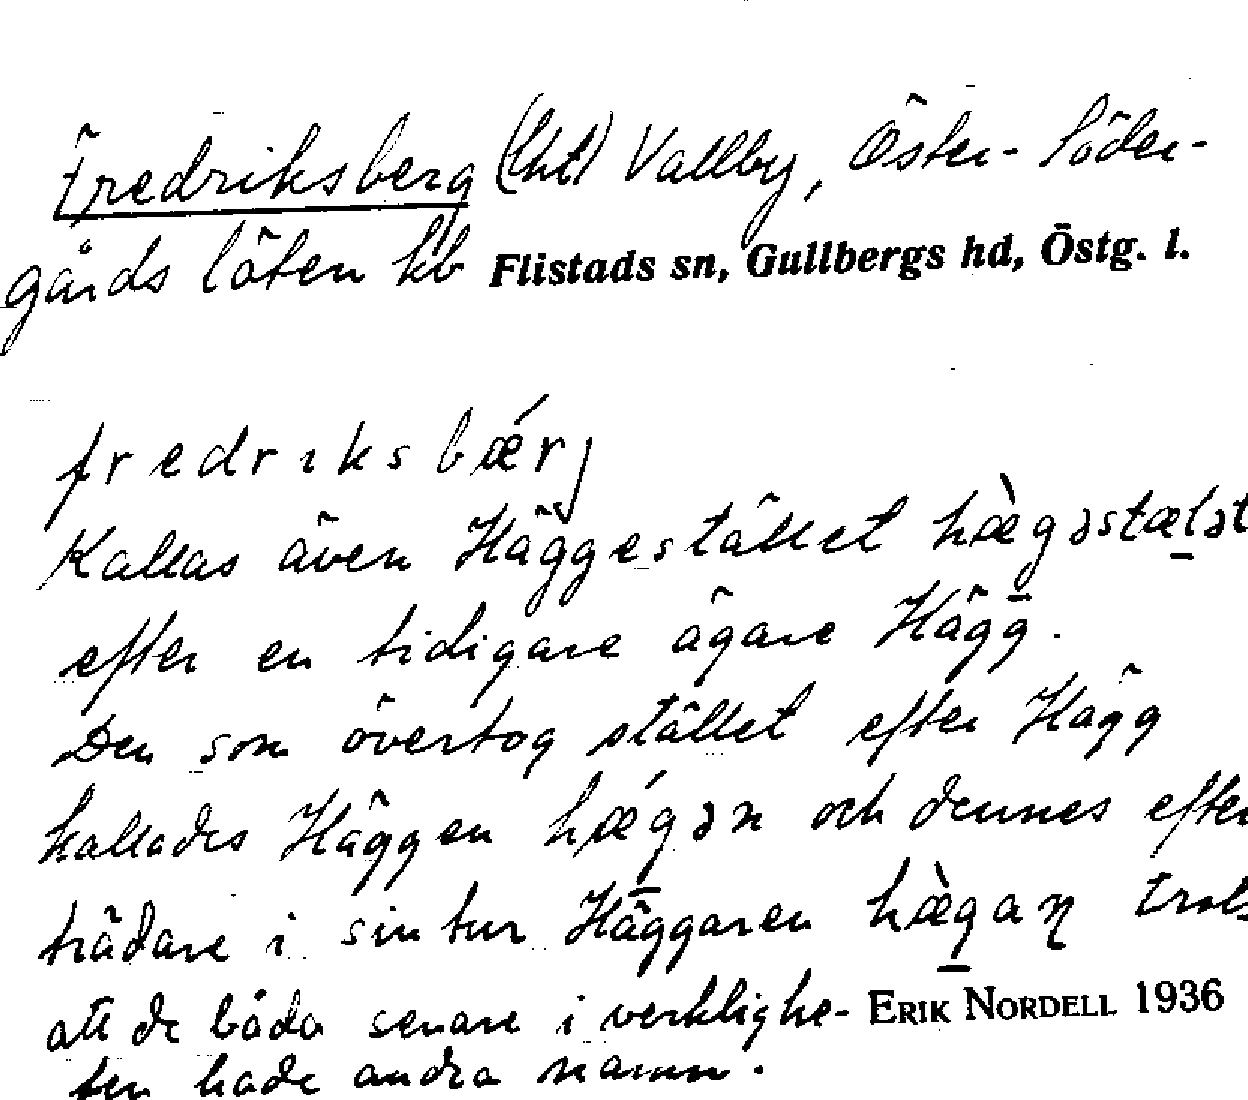 Fredriksberg (lht) Vallby, Öster- Söder-
gårds löten kb Flistads sn, Gullbergs hd, Östg. l.
fredrıksbǽrj
Kallas även Häggestället hæ̀g̲əstæl̲ət
efter en tidigare ägare Hägg.
Den som övertog stället efter Hägg
kallades Häggen hǽg̲ən och dennes efter
trädare i sin tur Häggaren hæ̀g̲aɳ trots
att de båda senare i verklighe- ERIK NORDELL 1936
ten hade andra namn.